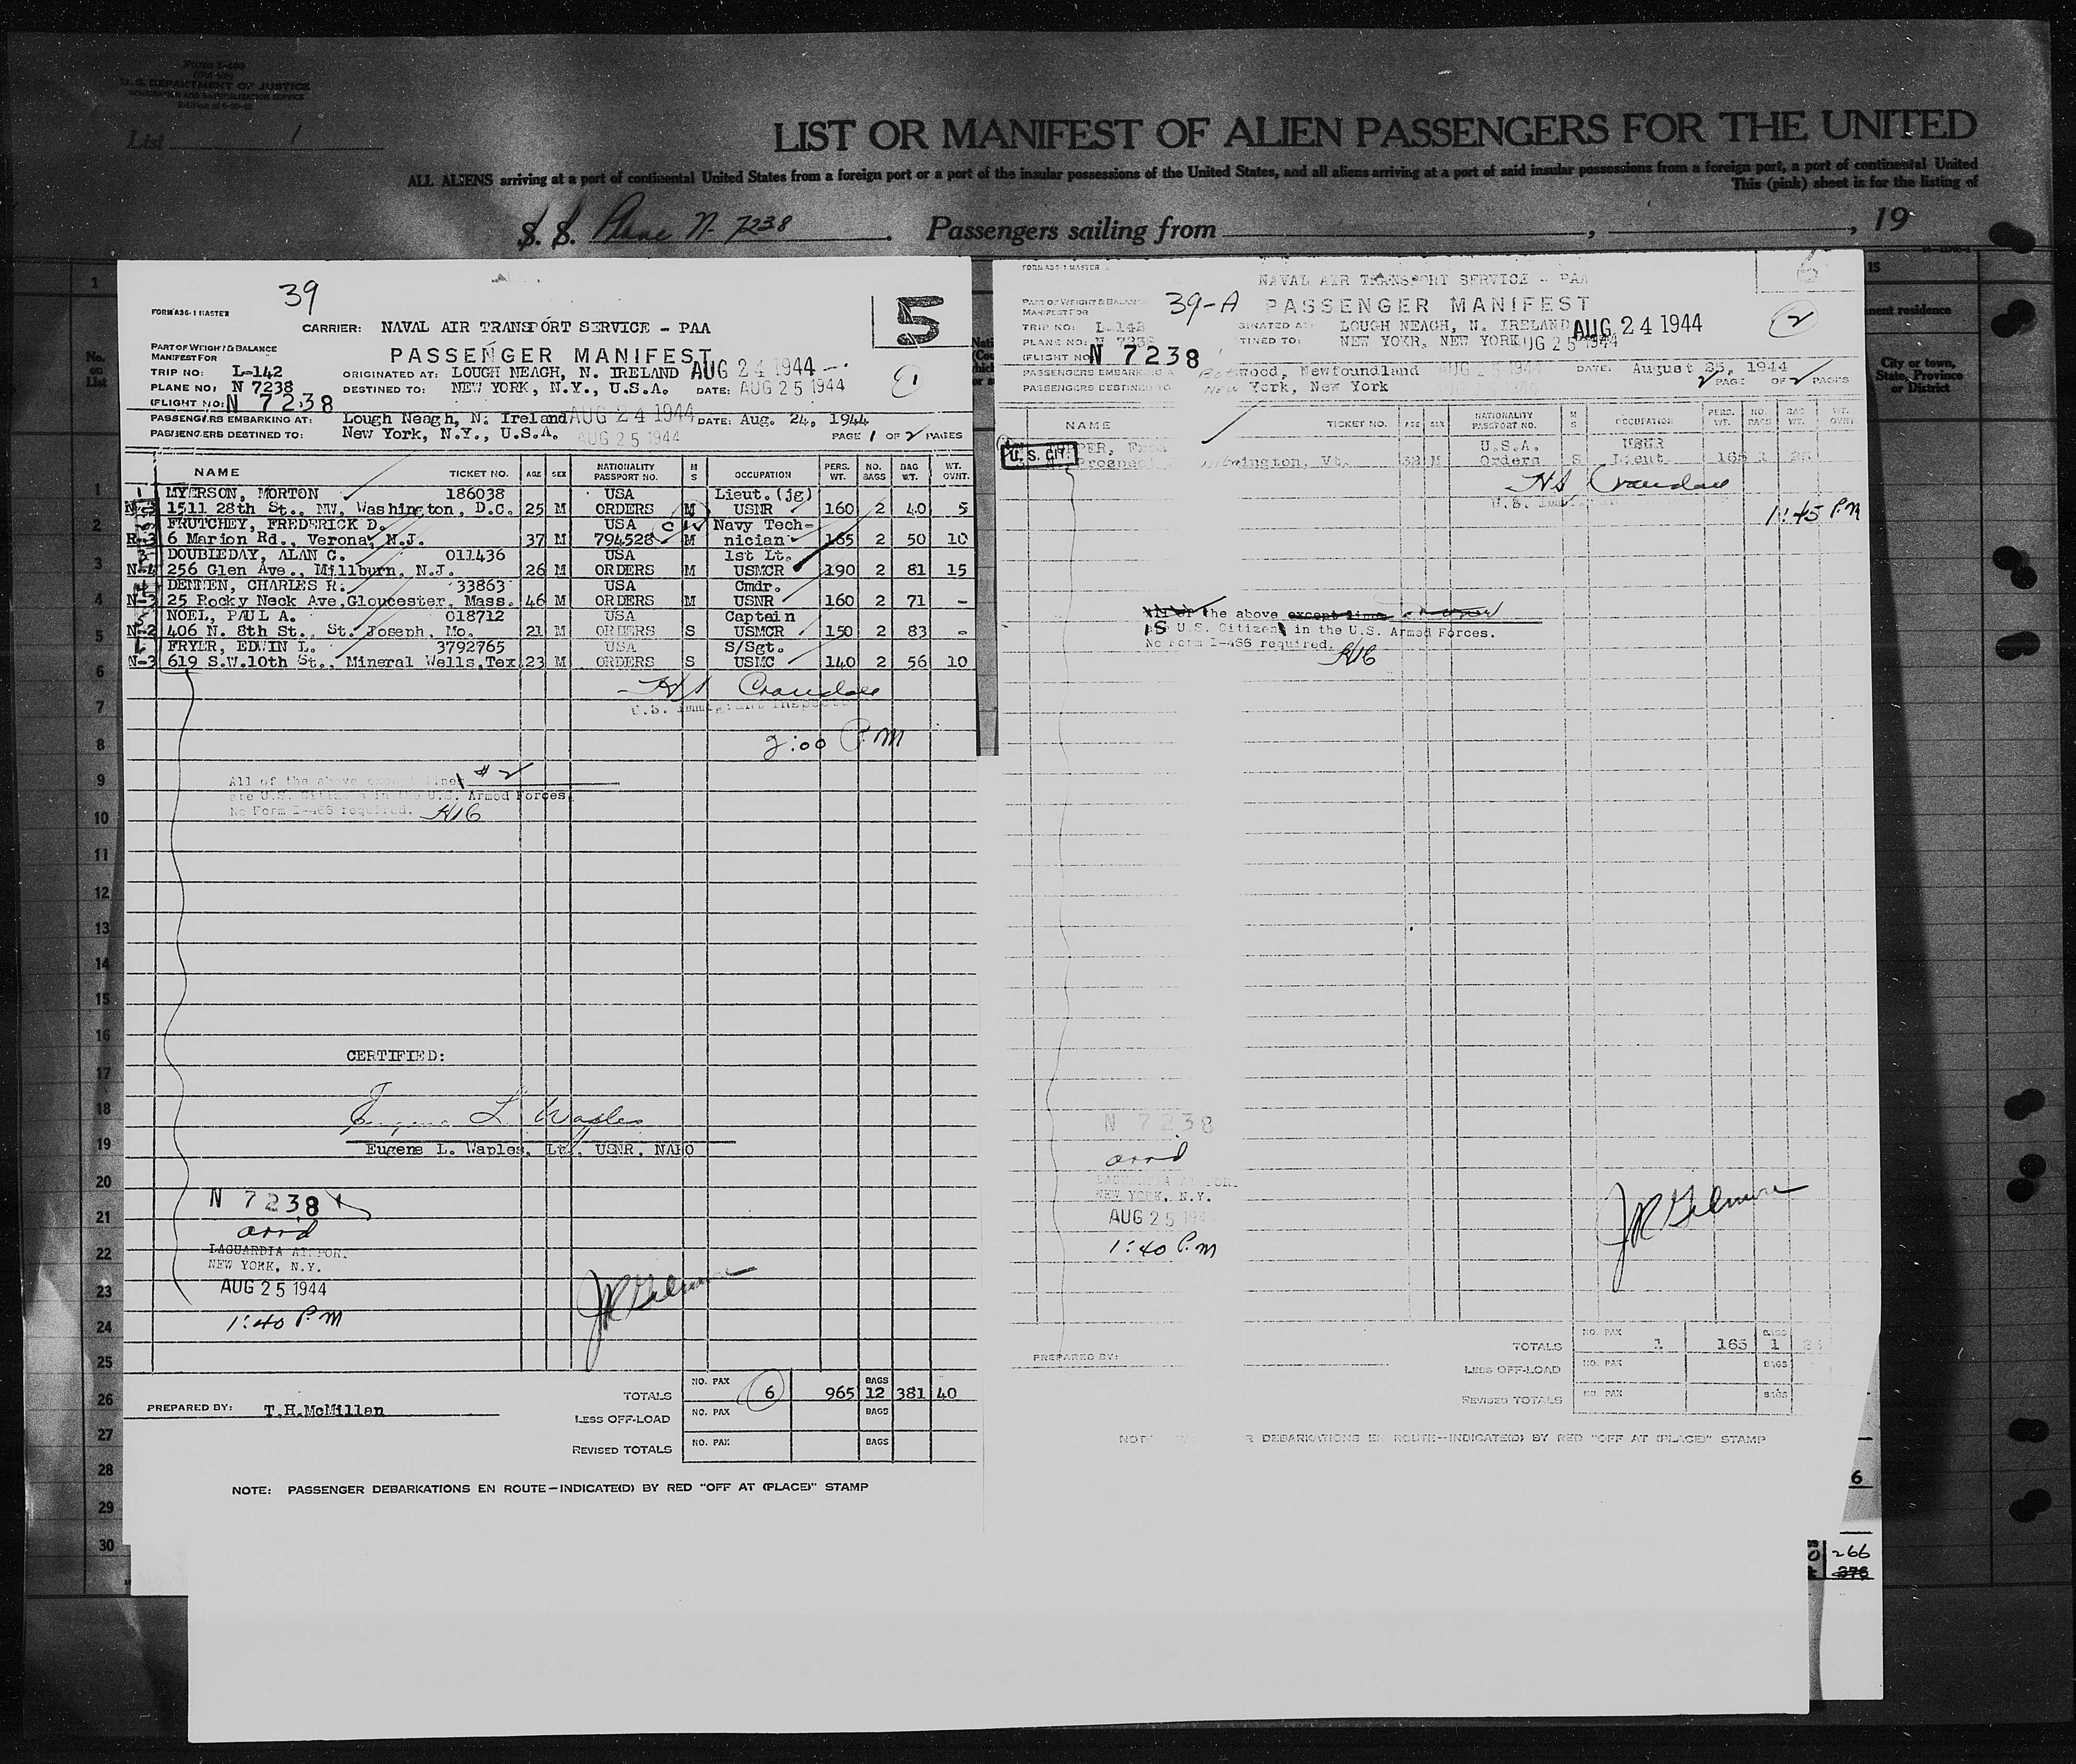 Form I-466
U. S. DEPARTMENT OF JUSTICE
IMMIGRATION AND NATURALIZATION SERVICE
List 1
LIST OR MANIFEST OF ALIEN PASSENGERS FOR THE UNITED
ALL ALIENS arriving at a port of continental United States from a foreign port or a port of the insular possessions of the United States, and all aliens arriving at a port of said insular possessions from a foreign port, a port of continental United
This (pink) sheet is for the listing of
S. S. Plane N- 7238. Passengers sailing from , , 19
No. on List
15
City or town, State, Province or District
39
5
FORM A36-1 MASTER
CARRIER: NAVAL AIR TRANSPORT SERVICE - PAA
PART OF WEIGHT & BALANCE
MANIFEST FOR
PASSENGER MANIFEST
TRIP NO: L-142 ORIGINATED AT: LOUGH NEAGH, N. IRELAND AUG 24 1944
1
PLANE NO: N 7238 DESTINED TO: NEW YORK, N.Y., U.S.A. DATE: AUG 25 1944
(FLIGHT NO: N 7238
PASSENGERS EMBARKING AT: Lough Neagh, N. Ireland AUG 24 1944 DATE: Aug. 24, 1944
PASSENGERS DESTINED TO: New York, N.Y., U.S.A. AUG 25 1944 PAGE 1 OF 2 PAGES
NAME TICKET NO. AGE SEX NATIONALITY PASSPORT NO. M S OCCUPATION PERS. WT. NO. BAGS BAG WT. WT. OVNT.
1 MYERSON, MORTON 186038 USA Lieut. (jg)
1511 28th St., NW, Washington, D.C. 25 M ORDERS M USNR 160 2 40 5
2 FRUTCHEY, FREDERICK D. USA Navy Tech-
6 Marion Rd., Verona, N.J. 37 M 794528 M nician 165 2 50 10
3 DOUBLEDAY, ALAN C. 011436 USA 1st Lt.
256 Glen Ave., Millburn, N.J. 26 M ORDERS M USMCR 190 2 81 15
4 DENNEN, CHARLES R. 33863 USA Cmdr.
N-3 25 Rocky Neck Ave, Gloucester, Mass. 46 M ORDERS M USNR 160 2 71 -
5 NOEL, PAUL A. 018712 USA Captain
N-2 406 N. 8th St., St. Joseph, Mo. 21 M ORDERS S USMCR 150 2 83 -
FRYER, EDWIN L. 3792765 USA S/Sgt.
N-3 619 S.W.10th St., Mineral Wells, Tex 23 M ORDERS S USMC 140 2 56 10
HS Crandall
U.S. Immigrant Inspector
2:00 P.M
All of the above except lines # 2
are U.S. Citizens in the U.S. Armed Forces.
No Form I-466 required.
CERTIFIED:
Eugene L. Waples
Eugene L. Waples, Lt., USNR, NAHO
N 7238
arrd
LAGUARDIA AIRPORT
NEW YORK, N.Y.
AUG 25 1944
1:40 P.M
JR Gilmore
TOTALS NO. PAX 6 965 BAGS 12 381 40
PREPARED BY: T.H.McMillan
LESS OFF-LOAD NO. PAX BAGS
REVISED TOTALS NO. PAX BAGS
NOTE: PASSENGER DEBARKATIONS EN ROUTE—INDICATE(D) BY RED "OFF AT (PLACE)" STAMP
FORM A36-1 MASTER
NAVAL AIR TRANSPORT SERVICE - PAA
PART OF WEIGHT & BALANCE
MANIFEST FOR
39-A PASSENGER MANIFEST
2
TRIP NO: L-142 LOUGH NEAGH, N. IRELAND AUG 24 1944
PLANE NO: N 7238 NEW YOKR, NEW YORK AUG 25 1944
(FLIGHT NO N 7238
PASSENGERS EMBARKING A Botwood, Newfoundland AUG 25 1944 DATE: August 25, 1944
PASSENGERS DESTINED TO New York, New York 2 PAGE OF 2 PAGES
NAME TICKET NO. AGE SEX NATIONALITY PASSPORT NO. M S OCCUPATION PERS. WT. NO. BAGS BAG WT. WT. OVNT.
U.S. CIT. PER, U.S.A. USNR
Prospect Vt. M Orders S Lieut. 165
HS Crandall
1:45 P.M
All of the above except lines
is U.S. Citizen in the U.S. Armed Forces.
No Form I-466 required.
N 7238
arrd
LAGUARDIA AIRPORT
NEW YORK, N.Y.
AUG 25 194
1:40 P.M
JR Gilmore
PREPARED BY:
TOTALS NO. PAX 1 165 BAGS 1
LESS OFF-LOAD NO. PAX BAGS
REVISED TOTALS NO. PAX BAGS
R DEBARKATIONS EN ROUTE—INDICATE(D) BY RED "OFF AT (PLACE)" STAMP
6
266
376
1
2
3
4
5
6
7
8
9
10
11
12
13
14
15
16
17
18
19
20
21
22
23
24
25
26
27
28
29
30